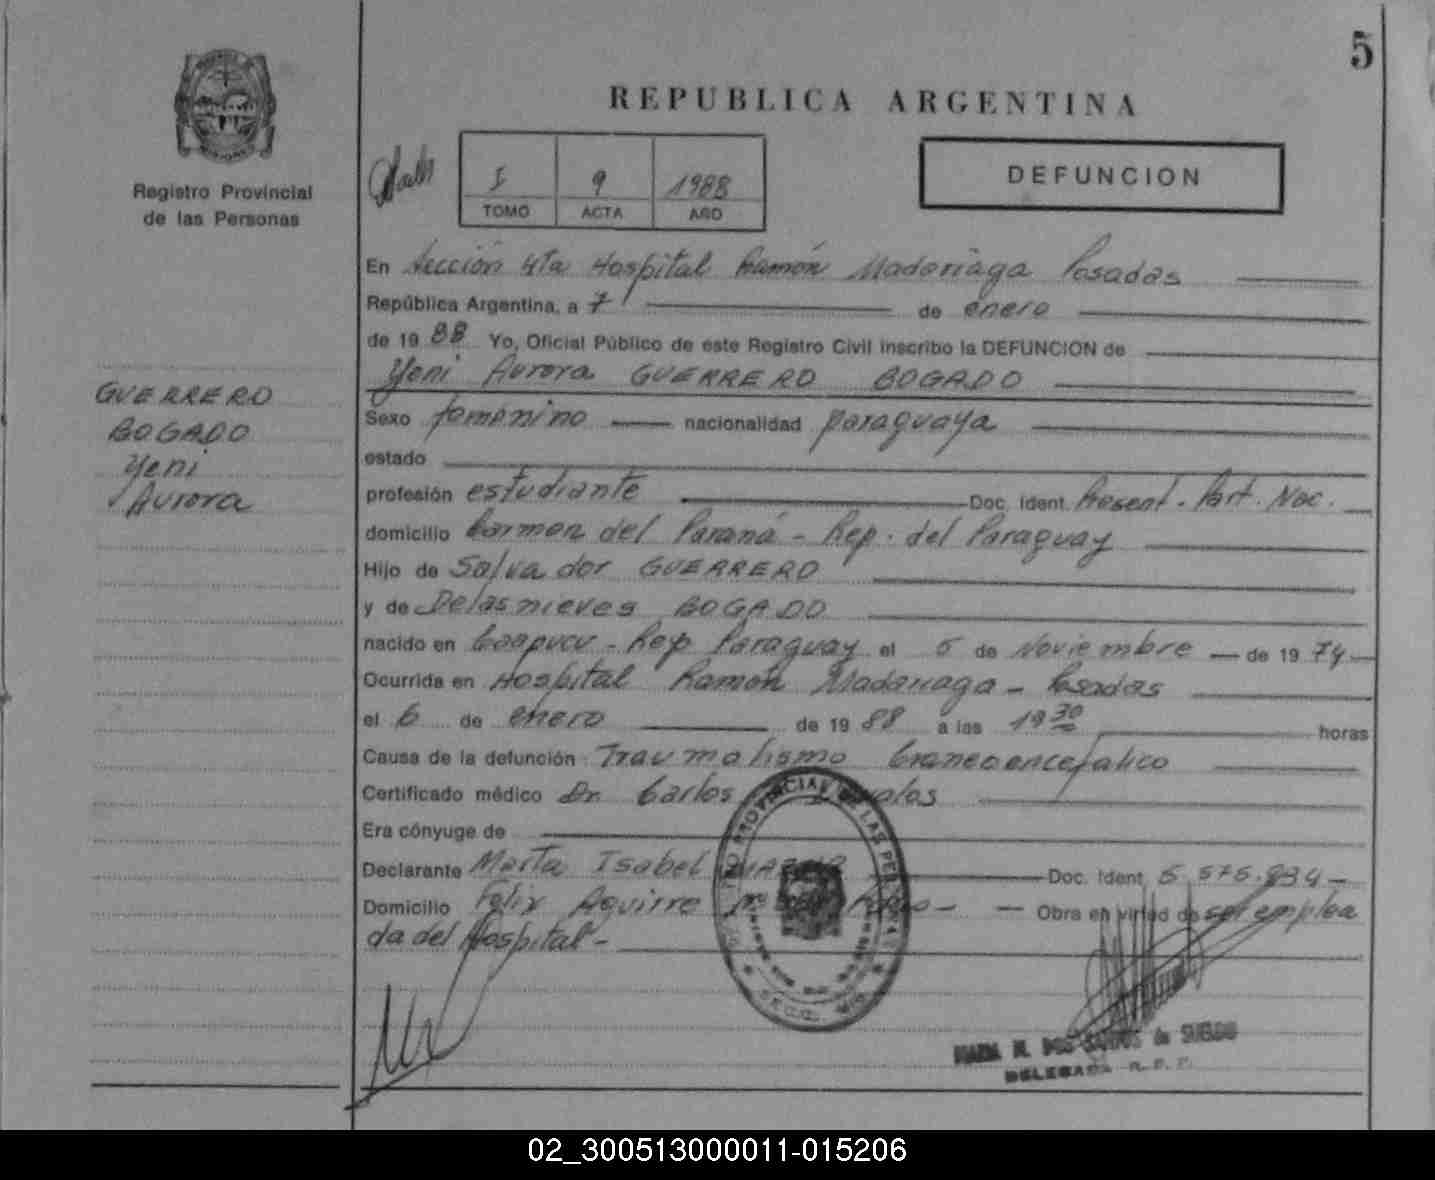 5
REPUBLICA ARGENTINA
MISIONES
Registro Provincial
de las Personas
I 9 1988
TOMO ACTA AÑO
DEFUNCION
En Sección 4ta Hospital Ramón Madariaga Posadas
República Argentina, a 7 de enero
de 19 88 Yo, Oficial Público de este Registro Civil inscribo la DEFUNCION de
Yeni Aurora GUERRERO BOGADO
GUERRERO
BOGADO
Yeni
Aurora
Sexo femenino nacionalidad paraguaya
estado
profesión estudiante Doc. Ident. Present. Part. Nac.
domicilio Carmen del Paraná - Rep. del Paraguay
Hijo de Salvador GUERRERO
y de Delasnieves BOGADO
nacido en Caapucu - Rep Paraguay el 5 de Noviembre de 19 74
Ocurrida en Hospital Ramón Madariaga - Posadas
el 6 de enero de 19 88 a las 19 30 horas
Causa de la defunción Traumatismo Craneoencefalico
Certificado médico Dr. Carlos
Era cónyuge de
Declarante Marta Isabel Doc. Ident. 5.575.934 -
Domicilio Felix Aguirre - Obra en virtud de ser emplea
da del Hospital -
REGISTRO PROVINCIAL DE LAS PERSONAS
MARIA N. DOS SANTOS de SUELDO
DELEGADA R.P.P.
02_300513000011-015206